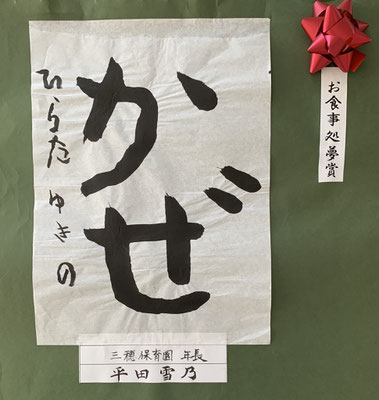 かぜ
ひらた ゆきの
お食事処夢賞
三穂保育園 年長
平田雪乃